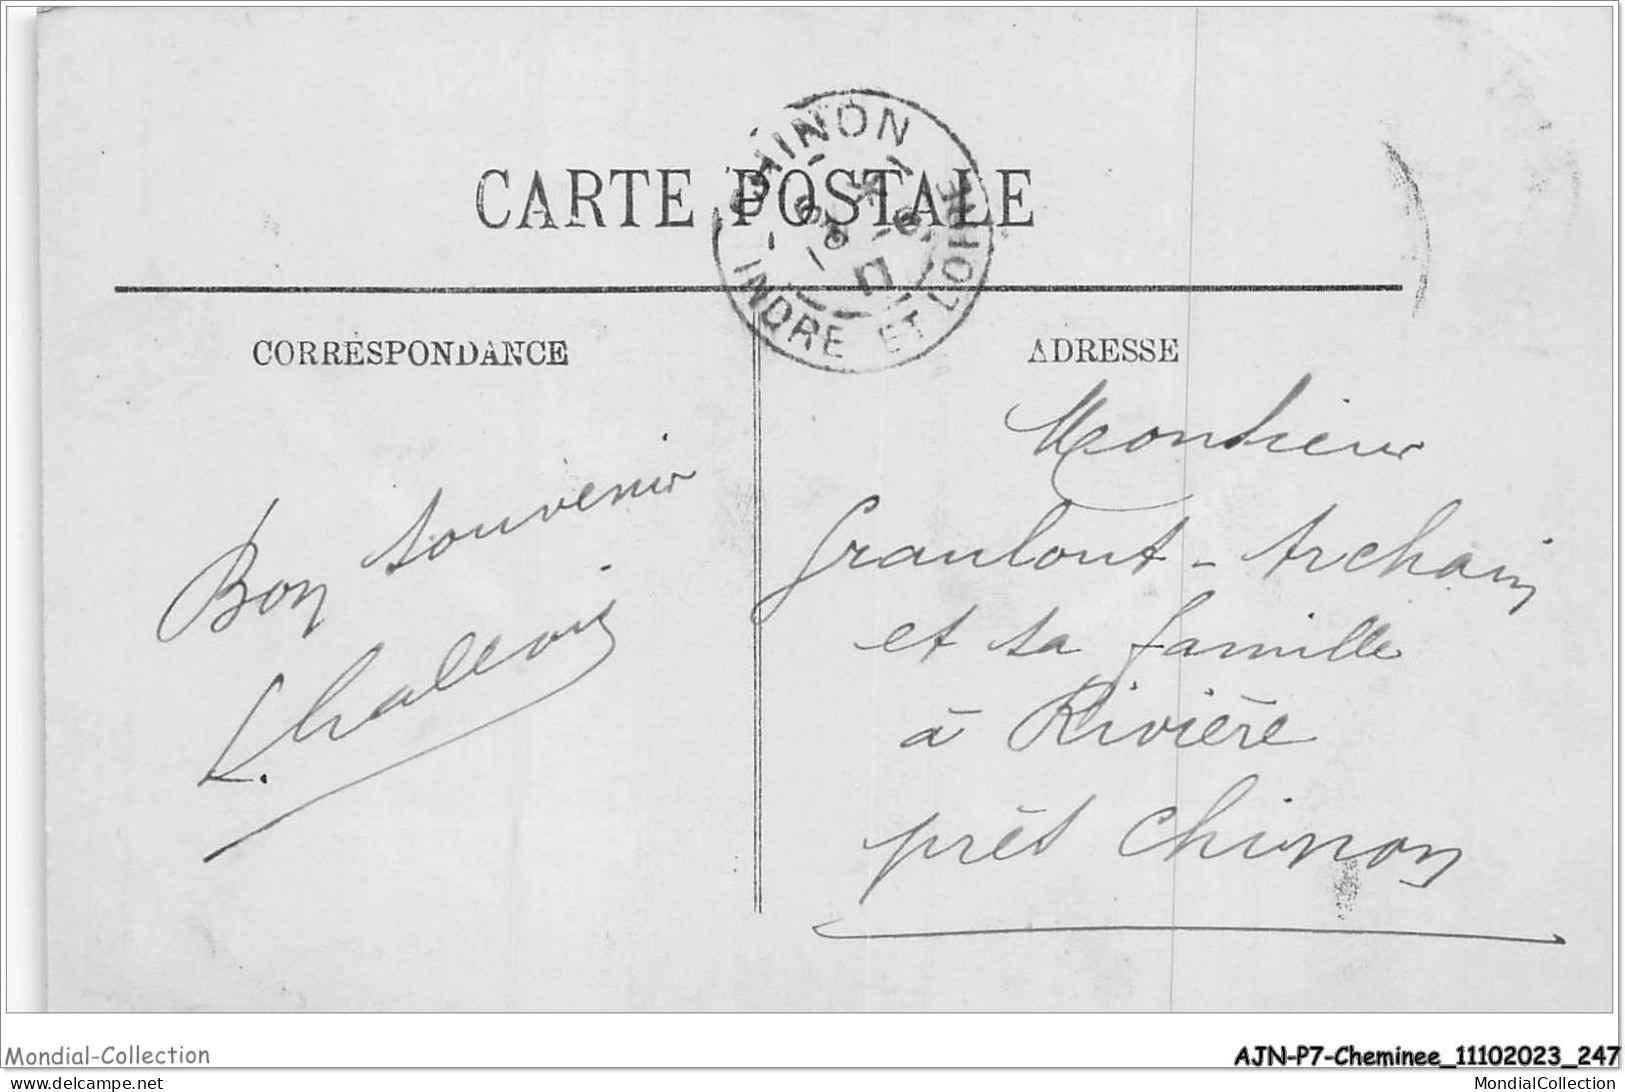 CARTE POSTALE
CHINON
INDRE ET LOIRE
CORRESPONDANCE
ADRESSE
Bon souvenir
Monsieur
et sa famille
à Rivière
près Chinon
Mondial-Collection
AJN-P7-Cheminee_11102023_247
www.delcampe.net
MondialCollection